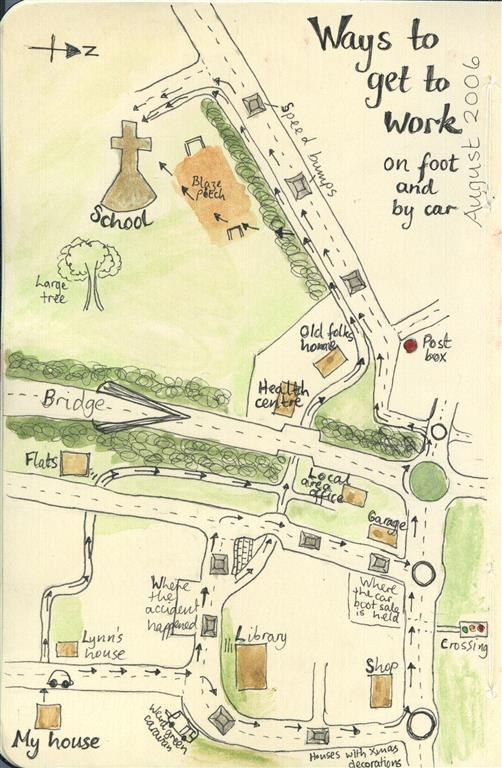 N
Ways to
get to
work
on foot
and
by car
August 2006
Speed bumps
Blaze
pitch
School
Large
tree
Old folks
home
Post
box
Health
centre
Bridge
Flats
Local
area
office
Garage
Where
the
accident
happened
Where
the car
boot sale
is held
Crossing
Lynn's
house
Library
Shop
My house
Weird green
caravan
Houses with Xmas
decorations